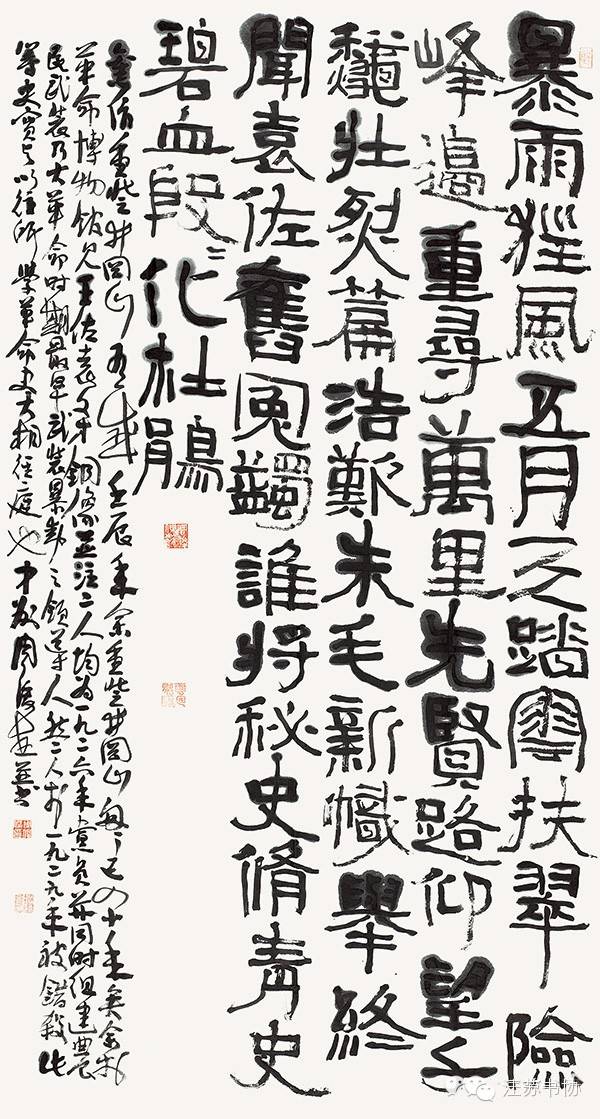 暴雨狂風五月天踏雲扶翠險
峰邊重尋萬里先賢路仰望千
龝壯烈篇浩歎朱毛新幟舉終
聞袁佐舊冤蠲誰將秘史脩青史
碧血段〻化杜鵑
重登井岡山有感 壬辰年余重登井岡山已四十年矣余於
革命博物館見王佐袁文才銅像並注二人均為一九二六年黨員並同時組建農
民武裝乃大革命時期最早武裝暴動之領導人然二人於一九二九年被錯殺此
等史實与以往所學革命史大相徑庭也
江苏书协